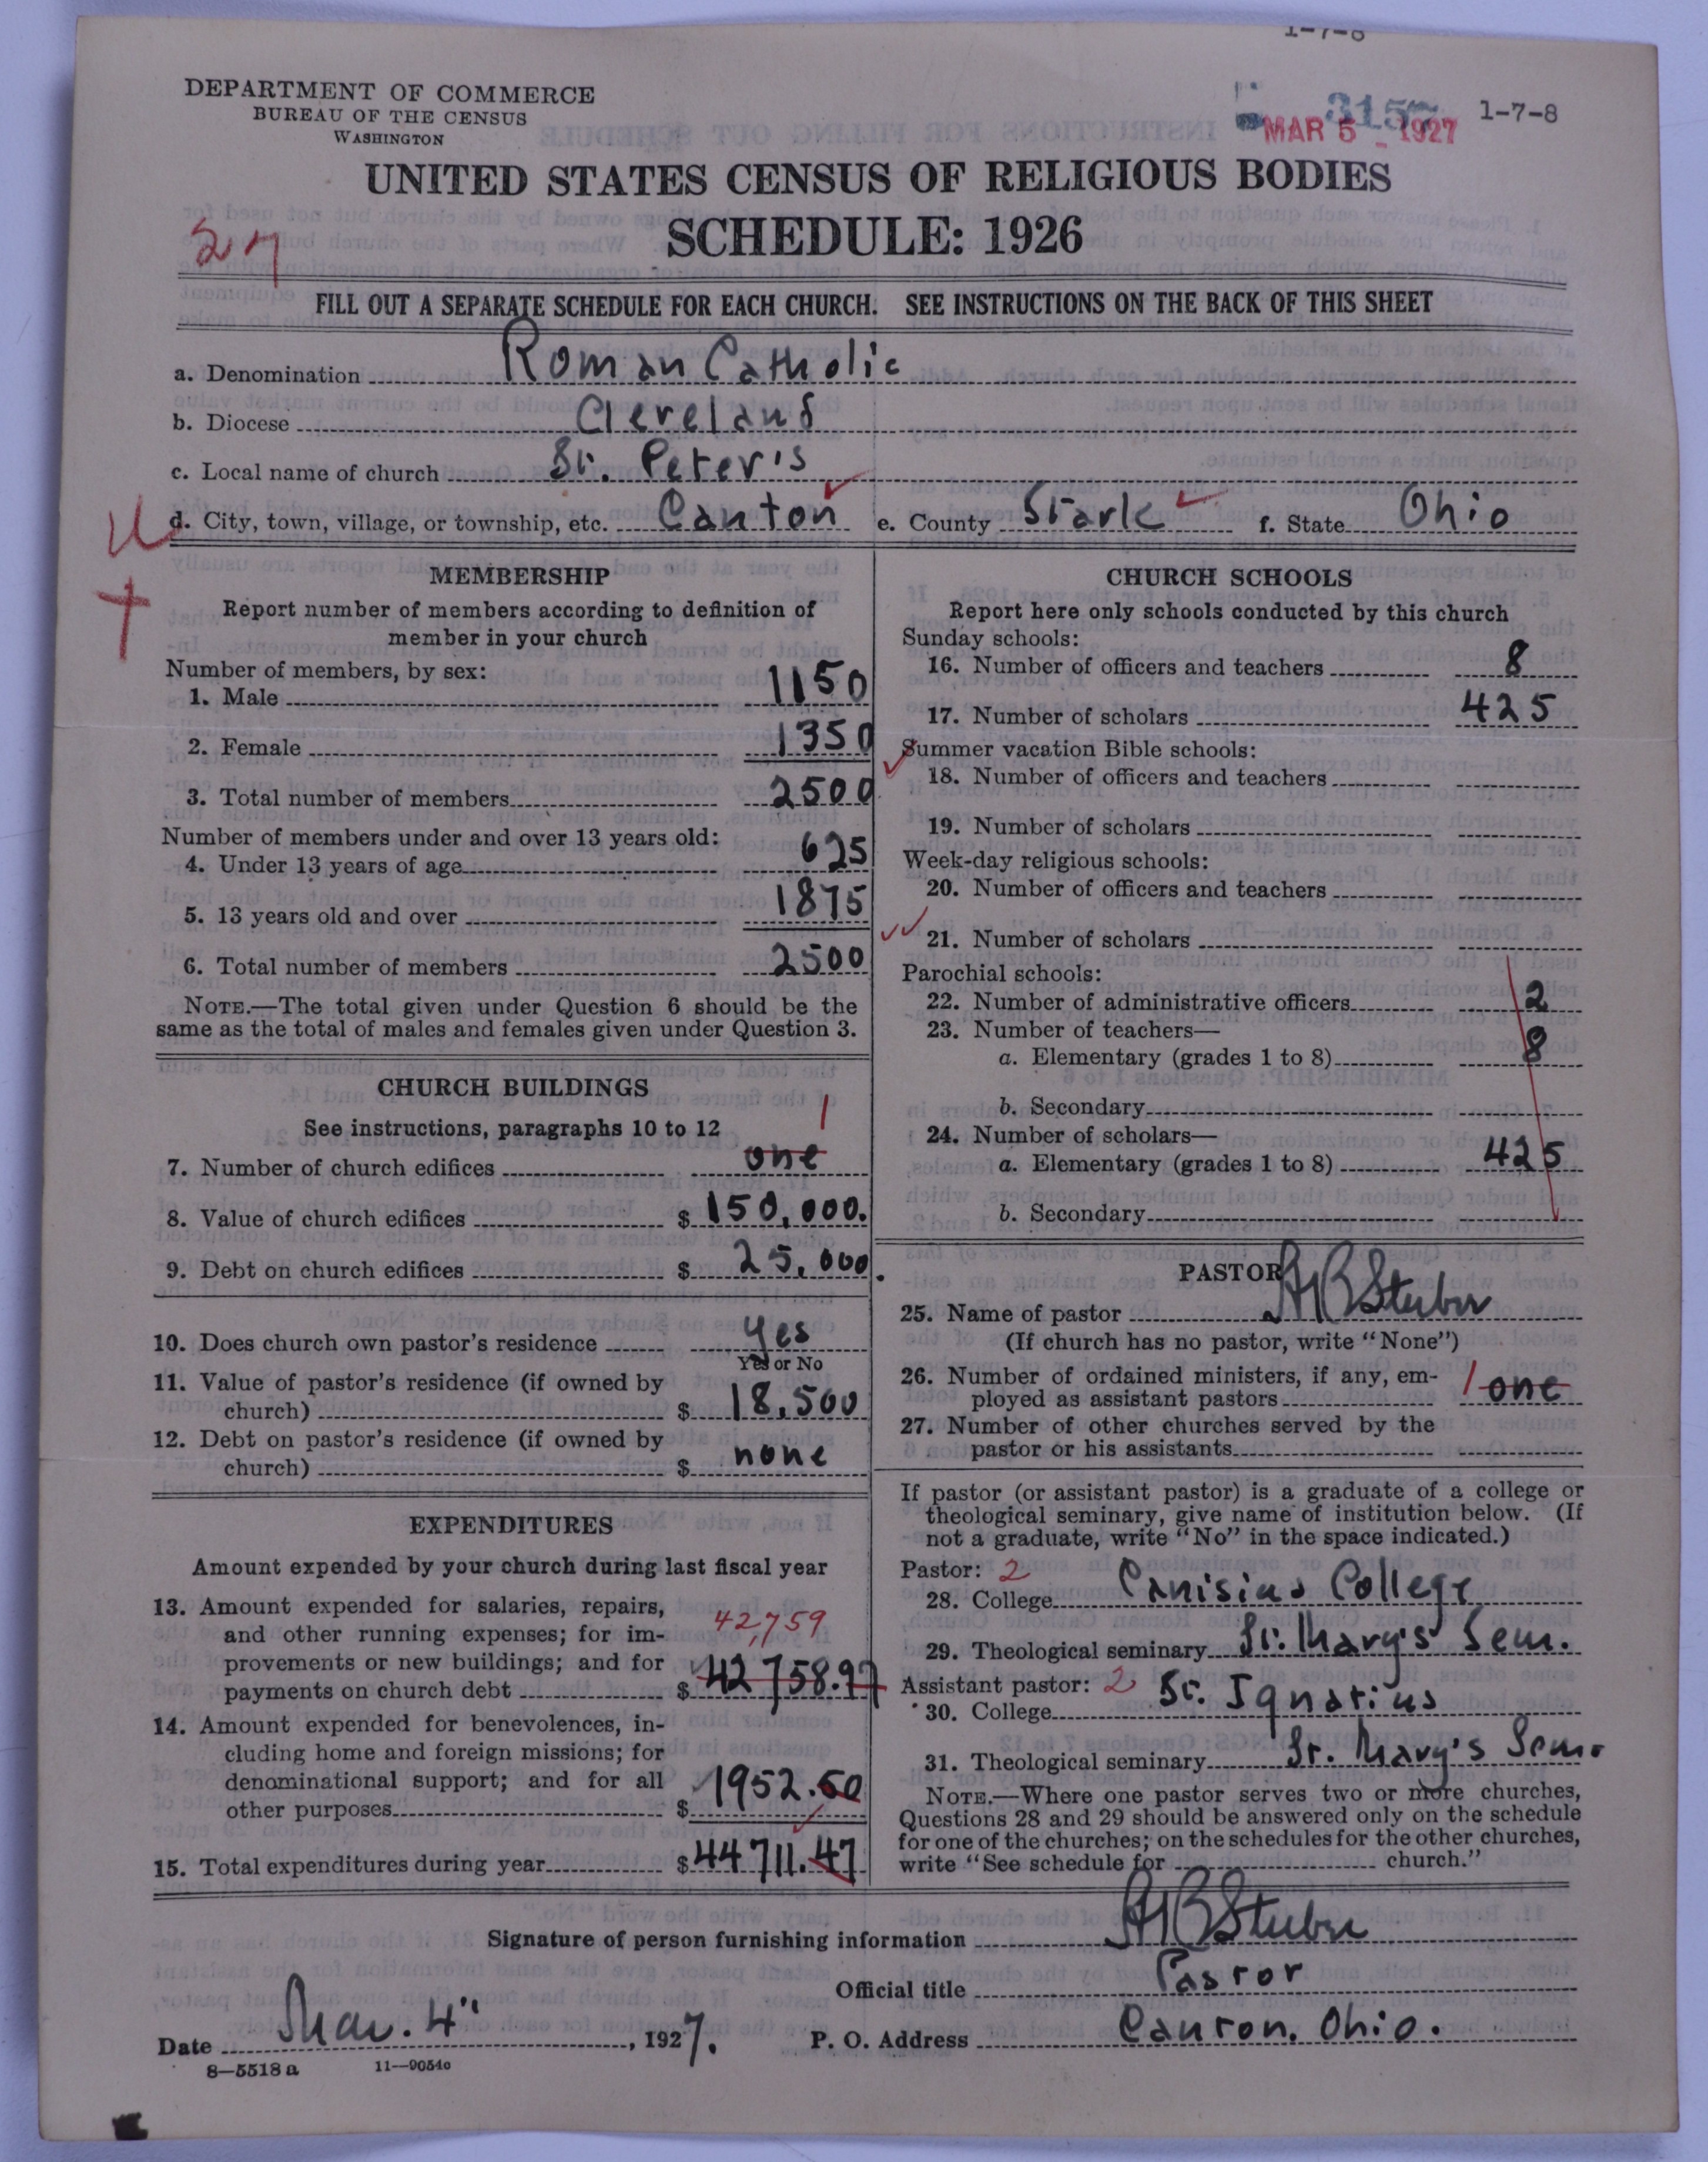 1-7-8
DEPARTMENT OF COMMERCE
BUREAU OF THE CENSUS
WASHINGTON
MAR 5 1927
1-7-8
UNITED STATES CENSUS OF RELIGIOUS BODIES
SCHEDULE: 1926
27
FILL OUT A SEPARATE SCHEDULE FOR EACH CHURCH. SEE INSTRUCTIONS ON THE BACK OF THIS SHEET
a. Denomination Roman Catholic
b. Diocese Cleveland
c. Local name of church St. Peter's
d. City, town, village, or township, etc. Canton e. County Stark f. State Ohio
MEMBERSHIP
Report number of members according to definition of
member in your church
Number of members, by sex:
1. Male 1150
2. Female 1350
3. Total number of members 2500
Number of members under and over 13 years old:
4. Under 13 years of age 625
5. 13 years old and over 1875
6. Total number of members 2500
NOTE.—The total given under Question 6 should be the
same as the total of males and females given under Question 3.
CHURCH BUILDINGS
See instructions, paragraphs 10 to 12
1
7. Number of church edifices one
8. Value of church edifices $ 150,000.
9. Debt on church edifices $ 25,000.
10. Does church own pastor's residence Yes
Yes or No
11. Value of pastor's residence (if owned by
church) $ 18,500
12. Debt on pastor's residence (if owned by
church) $ none
EXPENDITURES
Amount expended by your church during last fiscal year
13. Amount expended for salaries, repairs,
and other running expenses; for im- 42,759
provements or new buildings; and for
payments on church debt $ 42758.97
14. Amount expended for benevolences, in-
cluding home and foreign missions; for
denominational support; and for all
other purposes $ 1952.50
15. Total expenditures during year $ 44711.47
CHURCH SCHOOLS
Report here only schools conducted by this church
Sunday schools:
16. Number of officers and teachers 8
17. Number of scholars 425
Summer vacation Bible schools:
18. Number of officers and teachers
19. Number of scholars
Week-day religious schools:
20. Number of officers and teachers
21. Number of scholars
Parochial schools:
22. Number of administrative officers 2
23. Number of teachers—
a. Elementary (grades 1 to 8) 8
b. Secondary
24. Number of scholars—
a. Elementary (grades 1 to 8) 425
b. Secondary
PASTOR
25. Name of pastor HB Stuber
(If church has no pastor, write "None")
26. Number of ordained ministers, if any, em-
ployed as assistant pastors 1 one
27. Number of other churches served by the
pastor or his assistants
If pastor (or assistant pastor) is a graduate of a college or
theological seminary, give name of institution below. (If
not a graduate, write "No" in the space indicated.)
Pastor: 2
28. College Canisius College
29. Theological seminary St. Mary's Sem.
Assistant pastor: 2
30. College St. Ignatius
31. Theological seminary St. Mary's Sem.
NOTE.—Where one pastor serves two or more churches,
Questions 28 and 29 should be answered only on the schedule
for one of the churches; on the schedules for the other churches,
write "See schedule for church."
Signature of person furnishing information HB Stuber
Official title Pastor
Date Mar. 4", 1927. P. O. Address Canton, Ohio.
8—5518 a 11—9054c